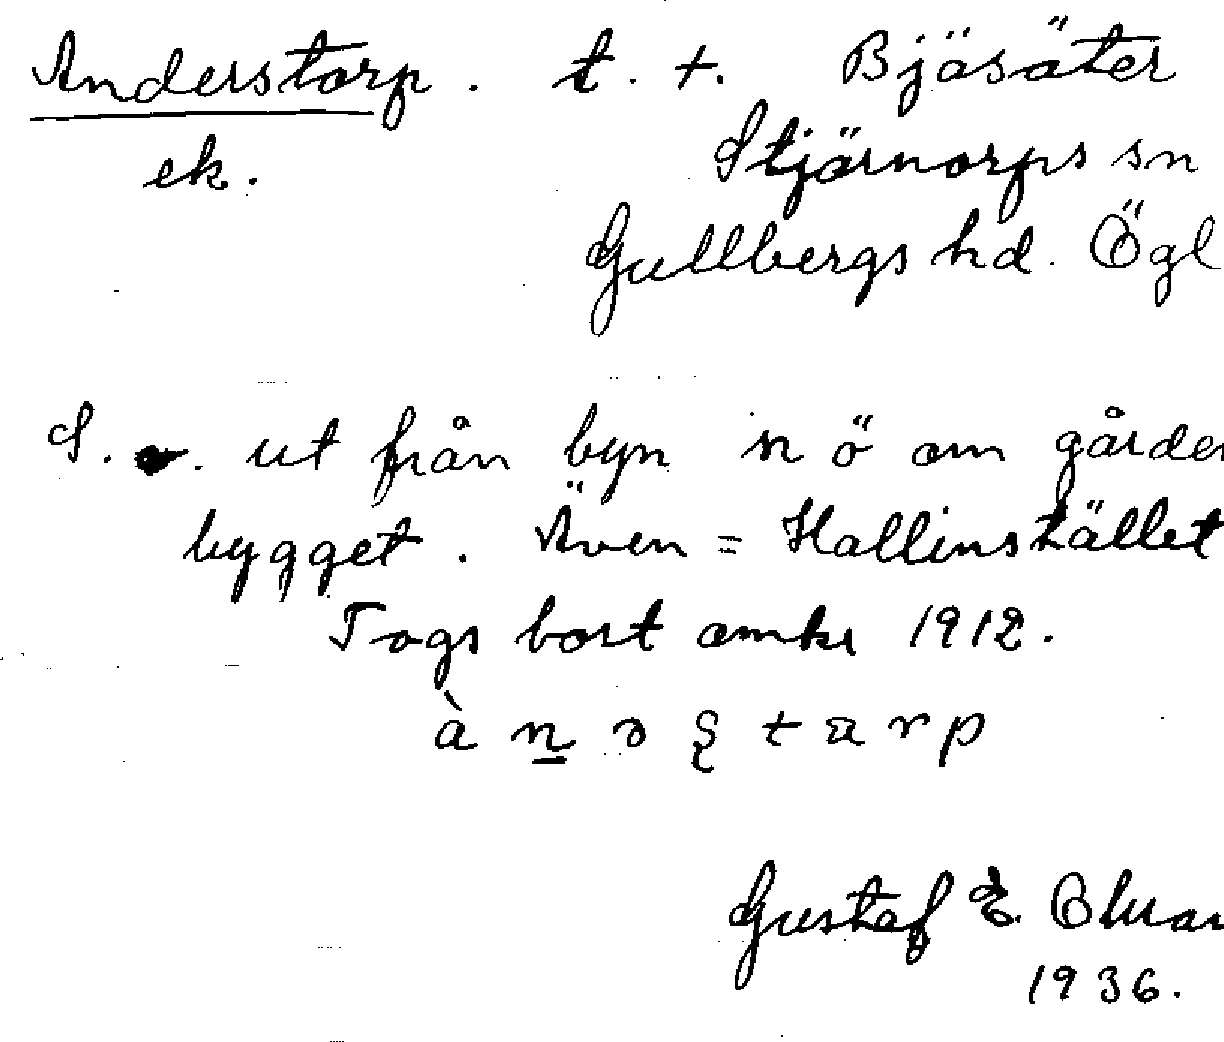 Anderstorp. t. +. Bjäsäter
ek. Stjärnorps sn
Gullbergs hd. Ögl
S. ut från byn n ö om gården
bygget. Även = Hallinstället
Togs bort omkr 1912.
Gustaf E.
1936.